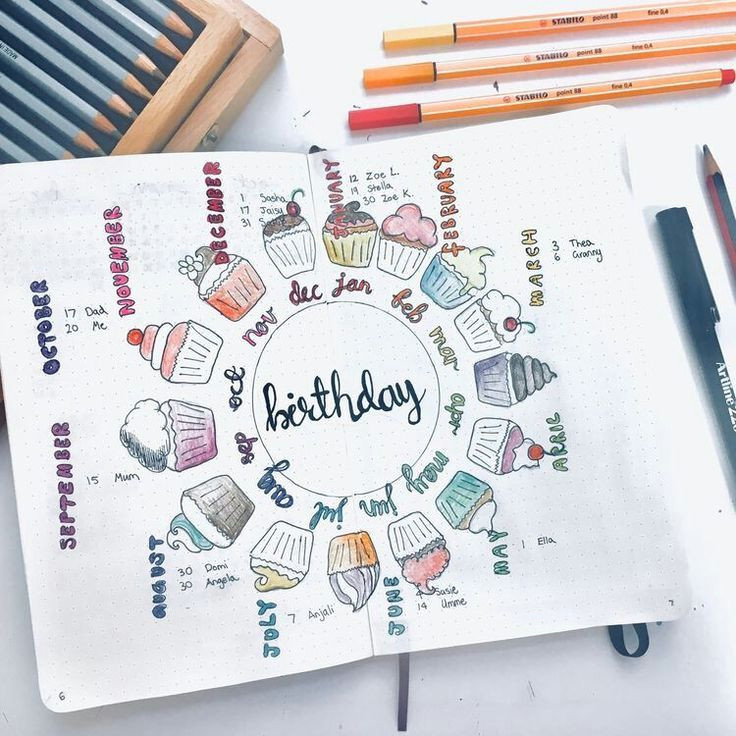 birthday
jan
feb
mar
apr
may
jun
jul
aug
sep
oct
nov
dec
JANUARY
12 Zoe L.
19 Stella
30 Zoe K.
FEBRUARY
MARCH
3 Thea
6 Granny
APRIL
MAY
1 Ella
JUNE
Susie
14 Umme
JULY
7 Anjali
AUGUST
30 Domi
30 Angela
SEPTEMBER
15 Mum
OCTOBER
17 Dad
20 Me
NOVEMBER
DECEMBER
1 Sasha
17 Jaisy
31
6
7
STABILO point 88 fine 0,4
STABILO point 88 fine 0,4
STABILO point 88 fine 0,4
Artline
MADE IN